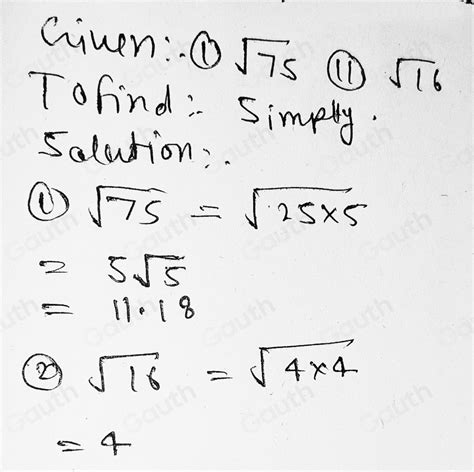 Given:. ① √75 ⑪ √16
To find:. Simply.
Solution:.
① √75 = √25×5
= 5√5
= 11.18
② √16 = √4×4
= 4